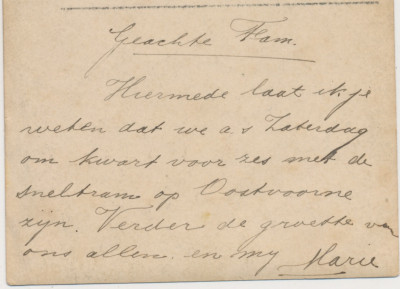 Geachte Fam.
Hiermede laat ik je
weten dat we a s Zaterdag
om kwart voor zes met de
sneltram op Oostvoorne
zijn. Verder de groette van
ons allen. en my Marie